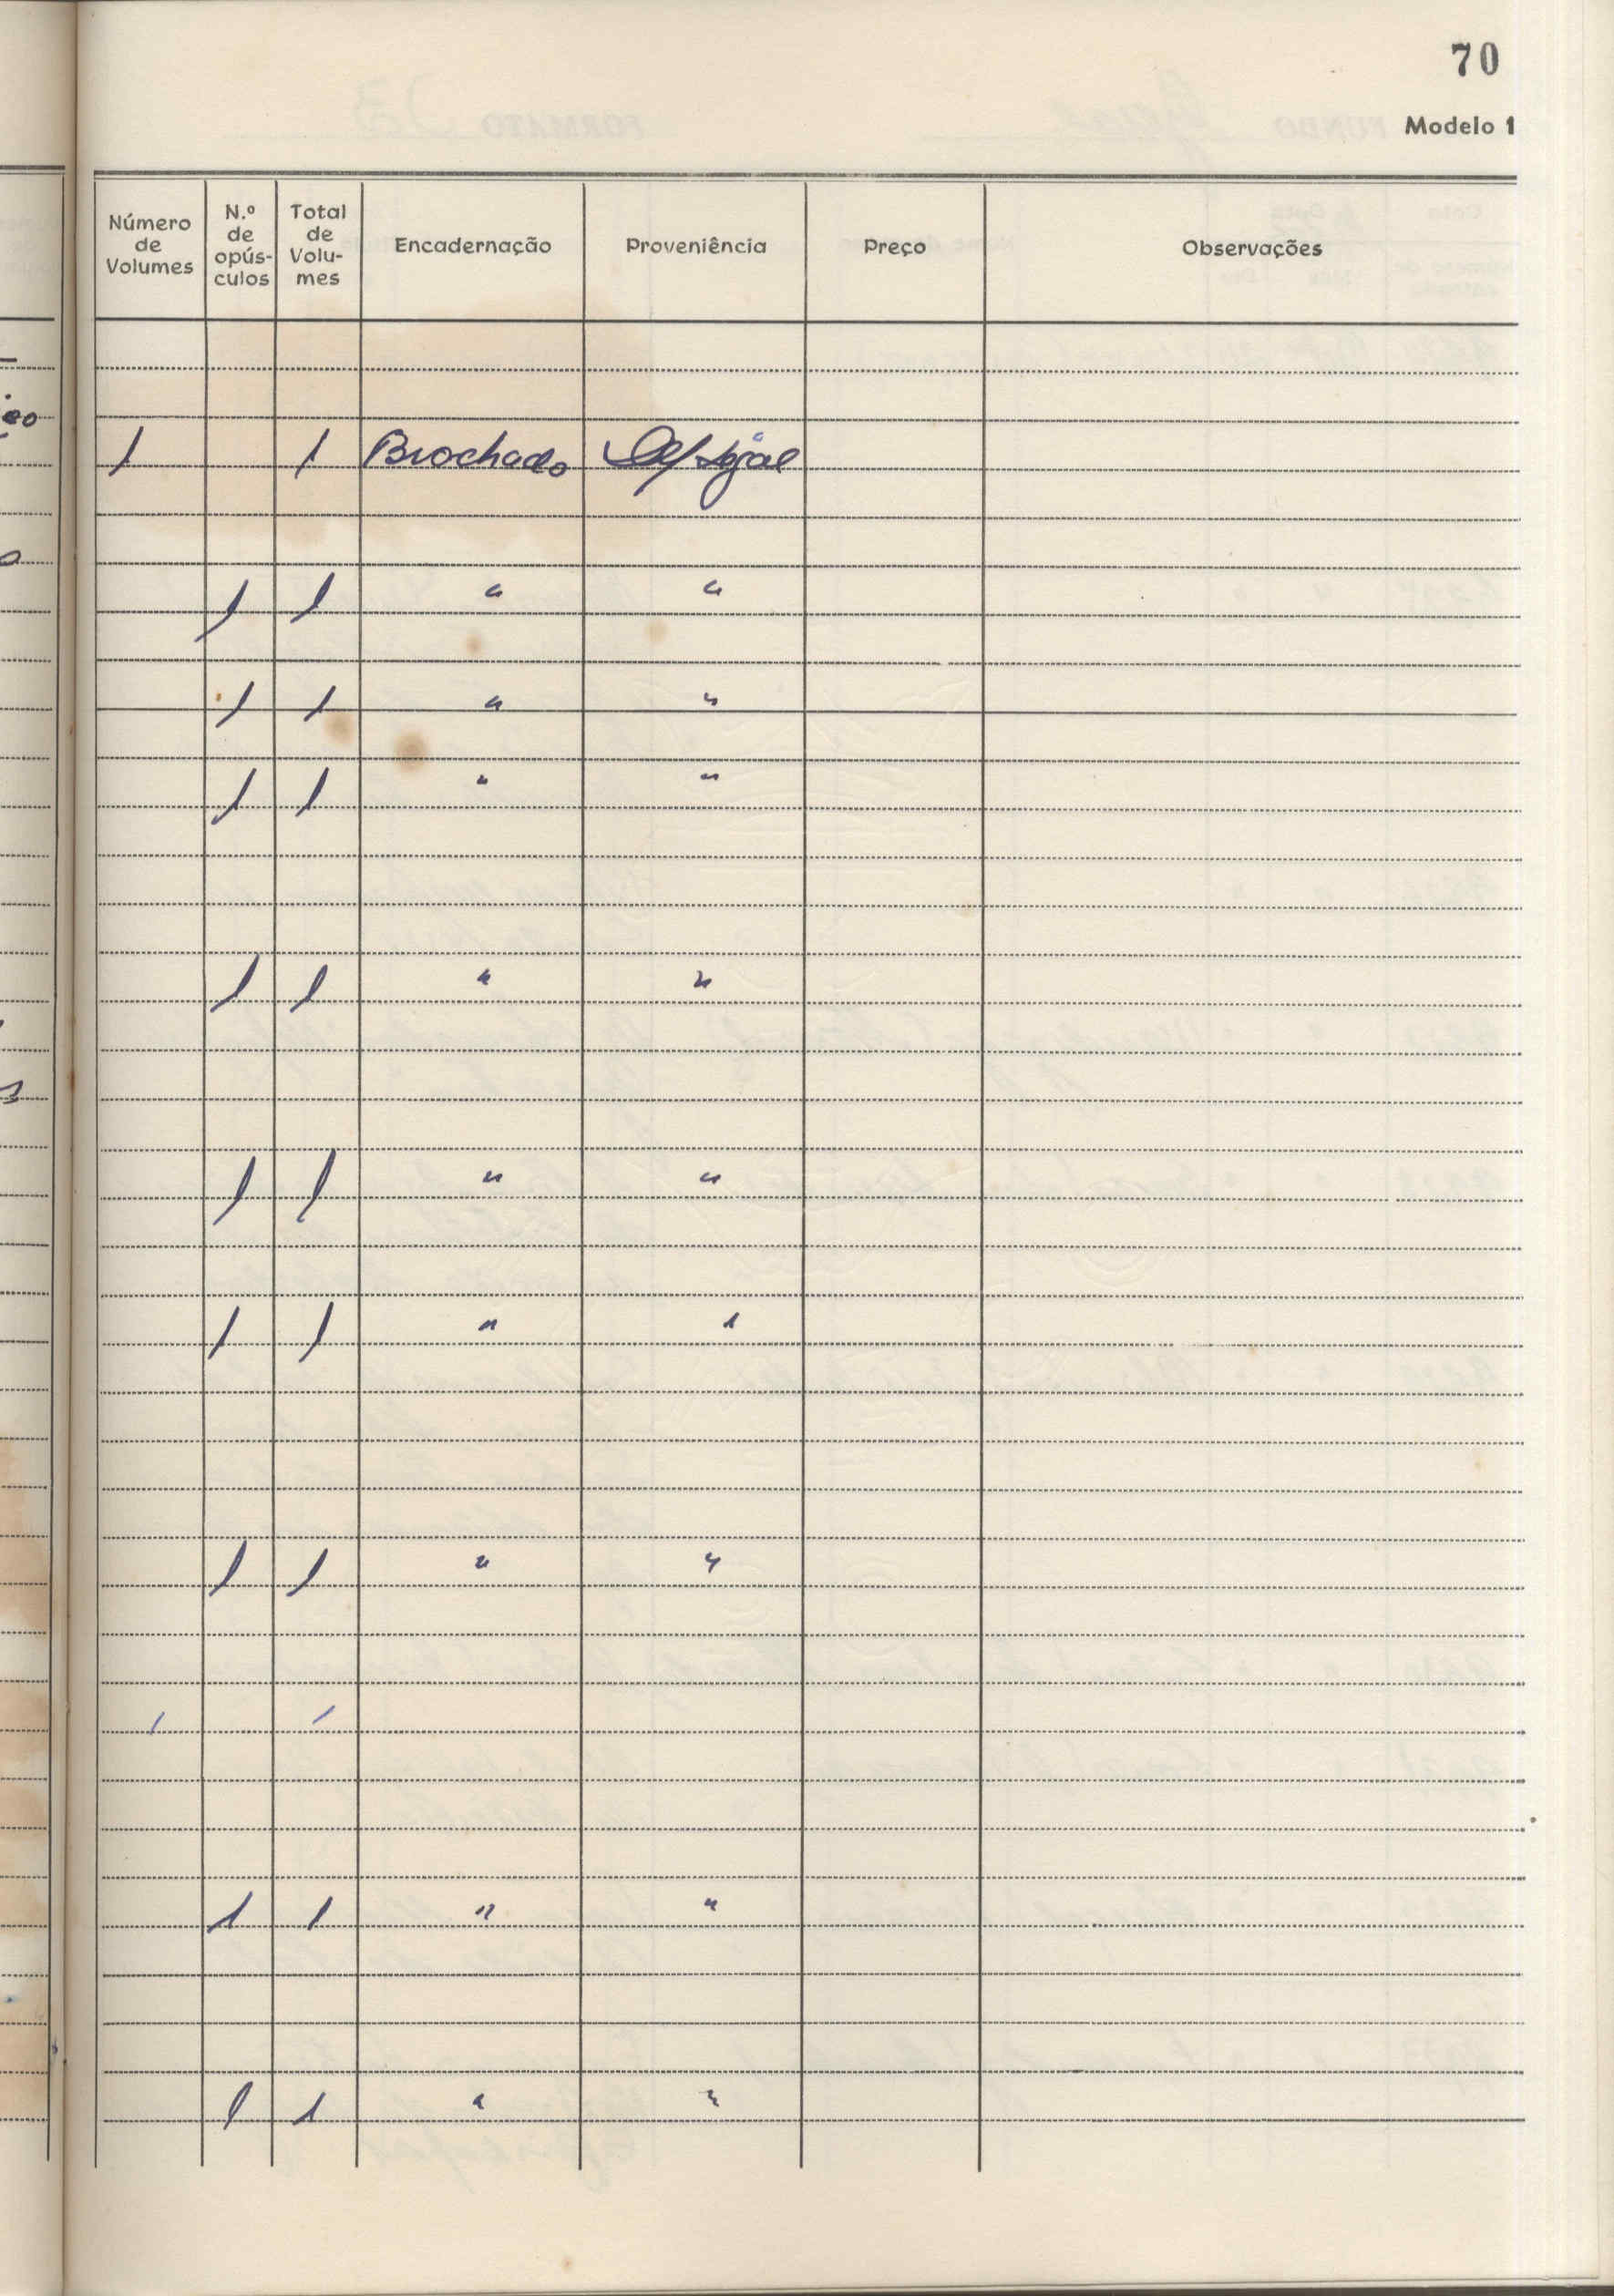 70
Modelo 1
Número de Volumes
N.º de opús-culos
Total de Volu-mes
Encadernação
Proveniência
Preço
Observações
1 1 Brochado
1 1 " "
1 1 " "
1 1 " "
1 1 " "
1 1 " "
1 1 " "
1 1 " "
1 1
1 1 " "
1 1 " "